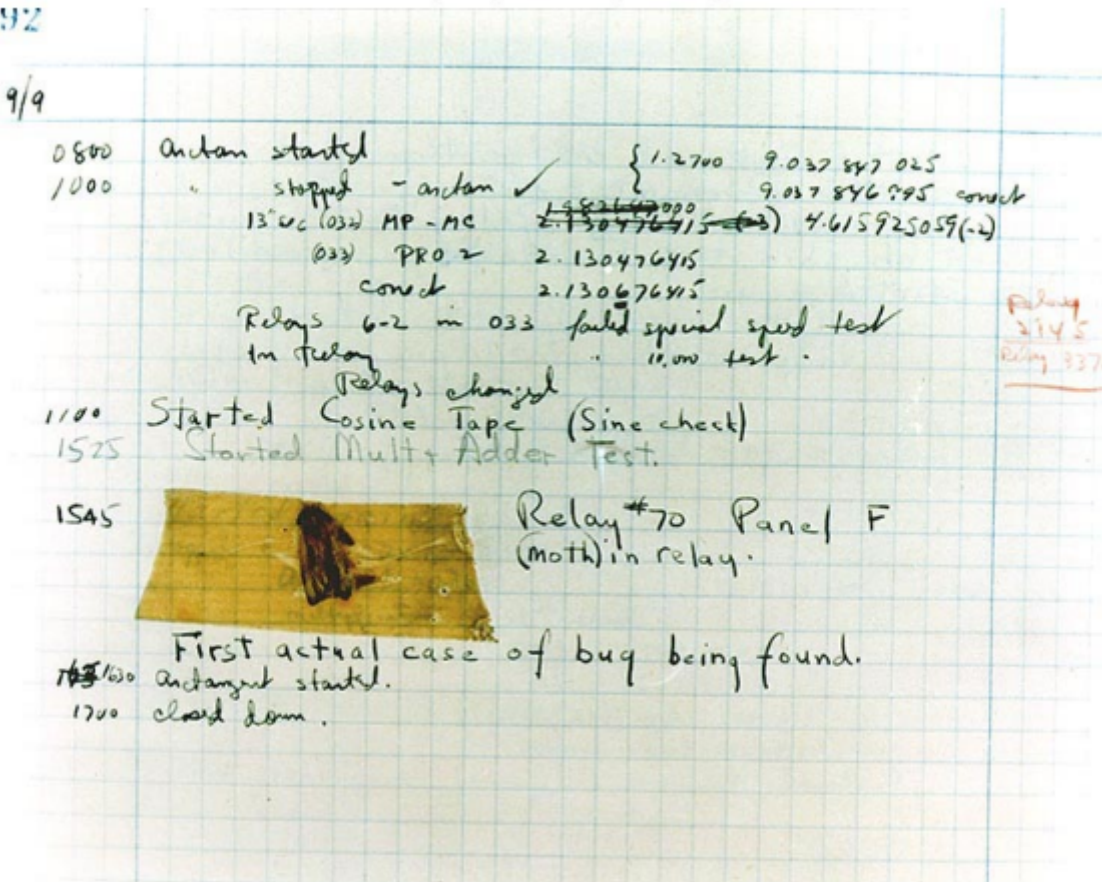 92
9/9
0800 antan started
1000 " stopped - antan ✓ { 1.2700 9.037 847 025
9.037 846 995 correct
13"uc (032) MP - MC 2.130476415 (-3) 4.615925059(-2)
(033) PRO 2 2.130476415
correct 2.130676415
Relays 6-2 in 033 failed special speed test
In relay " 10.000 test .
Relays changed
1100 Started Cosine Tape (Sine check)
1525 Started Mult+ Adder Test.
1545 Relay #70 Panel F
(moth) in relay.
First actual case of bug being found.
1630 antangent started.
1700 closed down.
Relay
2145
Relay 337